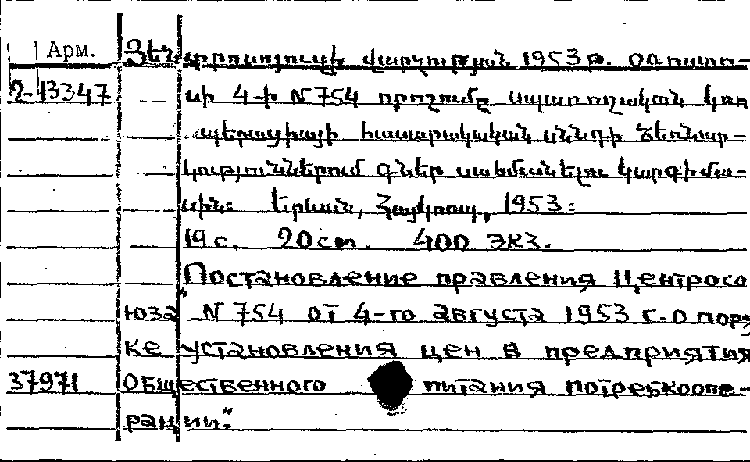 Арм. Ցենտրոսոյուզի վարչության 1953թ. օգոստո-
2-13347 սի 4-ի N 754 որոշումը սպառողական կոո
պերացիայի հասարակական սննդի ձեռնար-
կություններում գներ սահմանելու կարգի մա-
սին: Երևան, Հայկոոպ, 1953:
19 с. 20 см. 400 экз.
Постановление правления Центросо
юза N 754 от 4-го августа 1953 г. о поряд
ке установления цен в предприятия
37971 общественного питания потребкоопе-
рации".